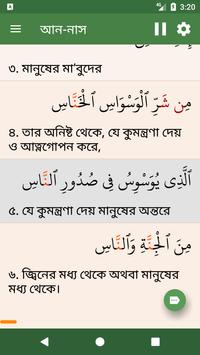 3:20
আন-নাস
৩. মানুষের মা'বুদের
مِن شَرِّ ٱلْوَسْوَاسِ ٱلْخَنَّاسِ
৪. তার অনিষ্ট থেকে, যে কুমন্ত্রণা দেয়
ও আত্নগোপন করে,
ٱلَّذِى يُوَسْوِسُ فِى صُدُورِ ٱلنَّاسِ
৫. যে কুমন্ত্রণা দেয় মানুষের অন্তরে
مِنَ ٱلْجِنَّةِ وَٱلنَّاسِ
৬. জ্বিনের মধ্য থেকে অথবা মানুষের
মধ্য থেকে।